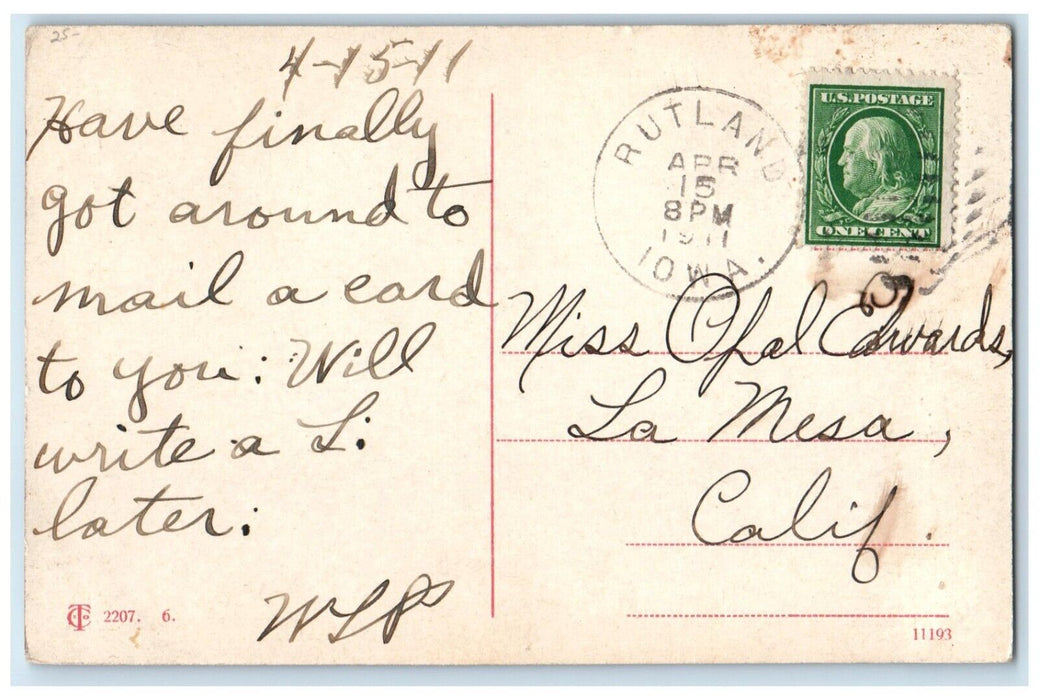 25-
4-15-11
Have finally
got around to
mail a card
to you: Will
write a L:
later:
WLP
CTC 2207. 6.
RUTLAND.
APR
15
8 PM
1911
IOWA.
U.S.POSTAGE
ONE CENT
Miss Opal Edwards,
La Mesa,
Calif.
11193